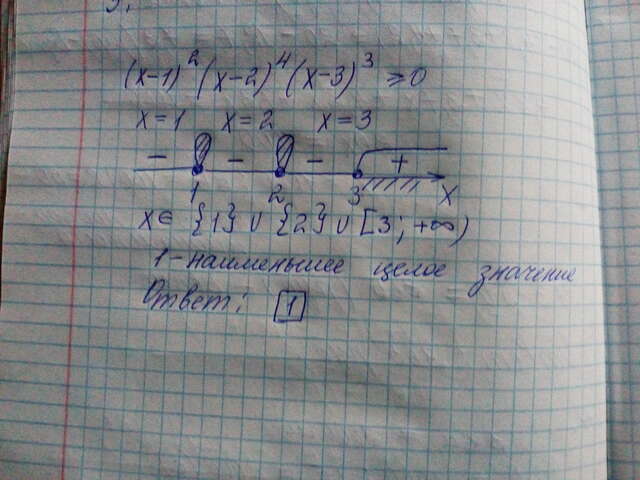 (x-1)² (x-2)⁴ (x-3)³ ≥ 0
x=1 x=2 x=3
− − − +
1 2 3 x
x ∈ {1} ∪ {2} ∪ [3; +∞)
1-наименьшее целое значение
Ответ: 1